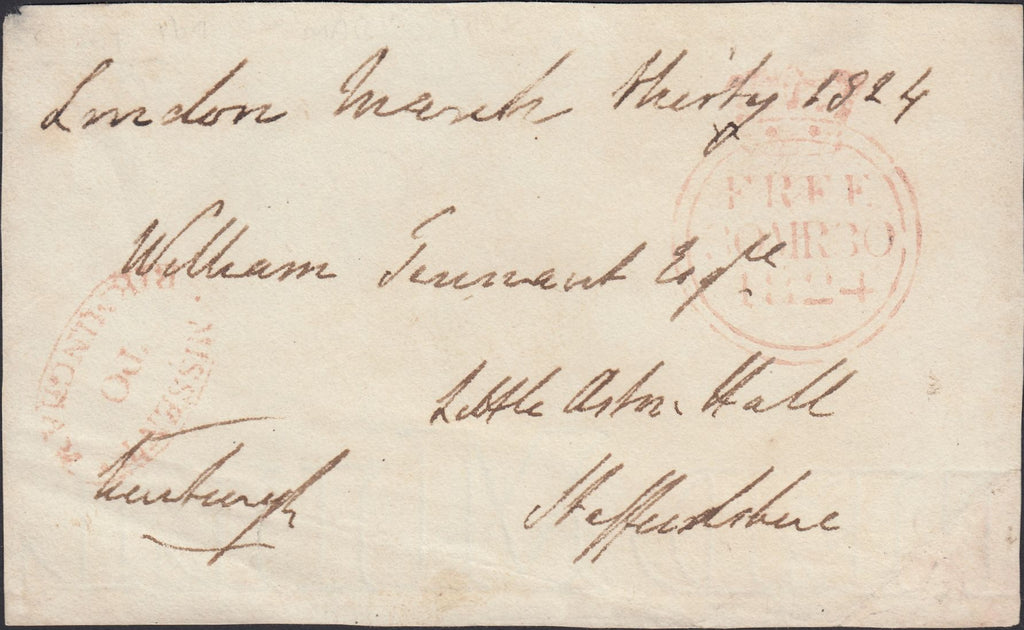 London March thirty 1824
FREE
30 MR 30
1824
William Tennant Esqre
Little Aston Hall
Staffordshire
MISSENT
TO
BIRMINGHAM